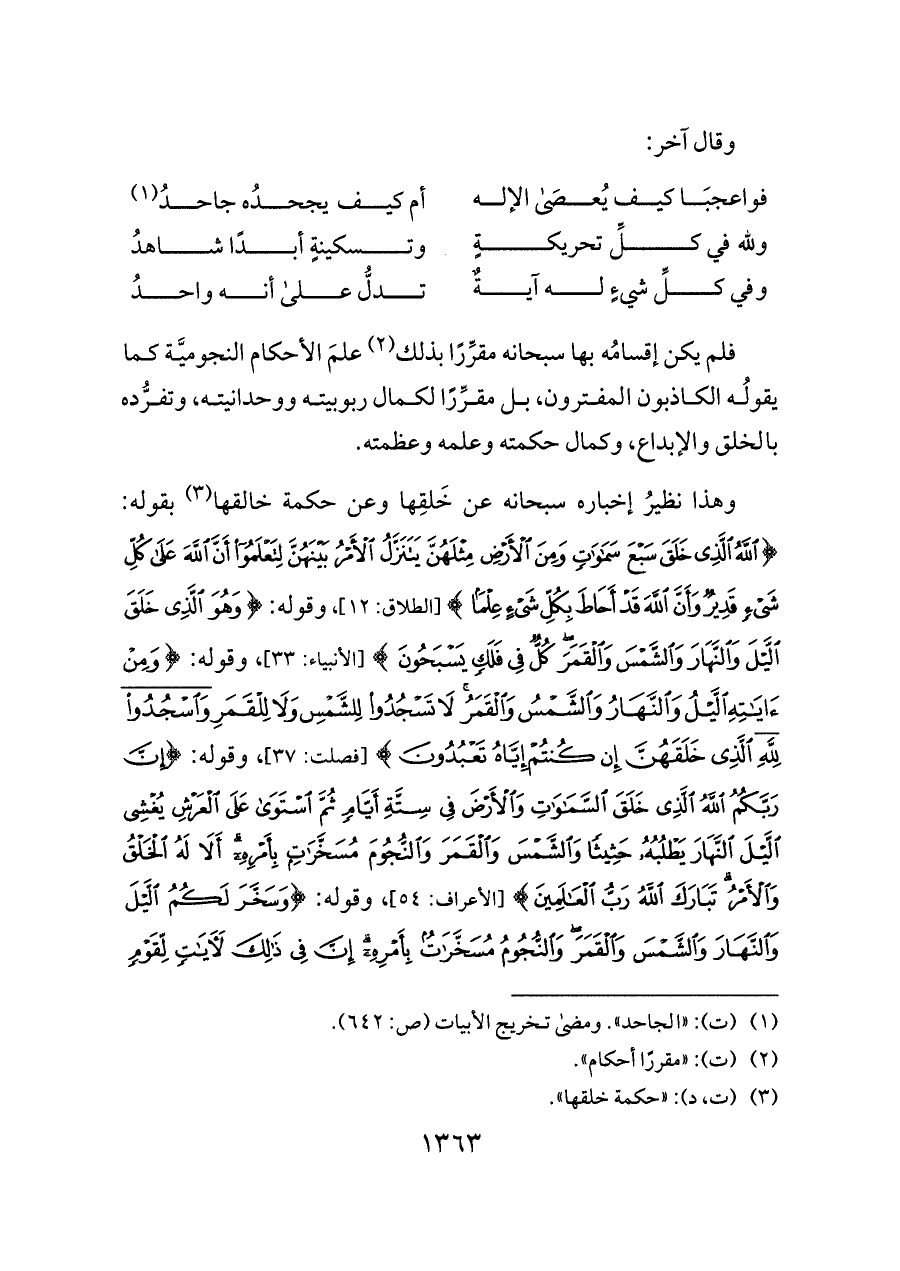 وقال آخر:
فواعجبَا كيف يُعصَىٰ الإله أم كيف يجحدُه جاحدُ(١)
ولله في كلِّ تحريكةٍ وتسكينةٍ أبدًا شاهدُ
وفي كلِّ شيءٍ له آيةٌ تدلُّ علىٰ أنه واحدُ
فلم يكن إقسامُه بها سبحانه مقرِّرًا بذلك(٢) علمَ الأحكام النجوميَّة كما
يقولُه الكاذبون المفترون، بل مقرِّرًا لكمال ربوبيته ووحدانيته، وتفرُّده
بالخلق والإبداع، وكمال حكمته وعلمه وعظمته.
وهذا نظيرُ إخباره سبحانه عن خَلقِها وعن حكمة خالقها(٣) بقوله:
﴿ٱللَّهُ ٱلَّذِى خَلَقَ سَبْعَ سَمَٰوَٰتٍ وَمِنَ ٱلْأَرْضِ مِثْلَهُنَّ يَتَنَزَّلُ ٱلْأَمْرُ بَيْنَهُنَّ لِتَعْلَمُوٓا۟ أَنَّ ٱللَّهَ عَلَىٰ كُلِّ
شَىْءٍ قَدِيرٌ وَأَنَّ ٱللَّهَ قَدْ أَحَاطَ بِكُلِّ شَىْءٍ عِلْمًۢا﴾ [الطلاق: ١٢]، وقوله: ﴿وَهُوَ ٱلَّذِى خَلَقَ
ٱلَّيْلَ وَٱلنَّهَارَ وَٱلشَّمْسَ وَٱلْقَمَرَ ۖ كُلٌّ فِى فَلَكٍ يَسْبَحُونَ﴾ [الأنبياء: ٣٣]، وقوله: ﴿وَمِنْ
ءَايَٰتِهِ ٱلَّيْلُ وَٱلنَّهَارُ وَٱلشَّمْسُ وَٱلْقَمَرُ ۚ لَا تَسْجُدُوا۟ لِلشَّمْسِ وَلَا لِلْقَمَرِ وَٱسْجُدُوا۟
لِلَّهِ ٱلَّذِى خَلَقَهُنَّ إِن كُنتُمْ إِيَّاهُ تَعْبُدُونَ﴾ [فصلت: ٣٧]، وقوله: ﴿إِنَّ
رَبَّكُمُ ٱللَّهُ ٱلَّذِى خَلَقَ ٱلسَّمَٰوَٰتِ وَٱلْأَرْضَ فِى سِتَّةِ أَيَّامٍ ثُمَّ ٱسْتَوَىٰ عَلَى ٱلْعَرْشِ يُغْشِى
ٱلَّيْلَ ٱلنَّهَارَ يَطْلُبُهُۥ حَثِيثًا وَٱلشَّمْسَ وَٱلْقَمَرَ وَٱلنُّجُومَ مُسَخَّرَٰتٍۭ بِأَمْرِهِۦٓ ۗ أَلَا لَهُ ٱلْخَلْقُ
وَٱلْأَمْرُ ۗ تَبَارَكَ ٱللَّهُ رَبُّ ٱلْعَٰلَمِينَ﴾ [الأعراف: ٥٤]، وقوله: ﴿وَسَخَّرَ لَكُمُ ٱلَّيْلَ
وَٱلنَّهَارَ وَٱلشَّمْسَ وَٱلْقَمَرَ ۖ وَٱلنُّجُومُ مُسَخَّرَٰتٌۢ بِأَمْرِهِۦٓ ۗ إِنَّ فِى ذَٰلِكَ لَءَايَٰتٍ لِّقَوْمٍ
(١) (ت): «الجاحد». ومضىٰ تخريج الأبيات (ص: ٦٤٢).
(٢) (ت): «مقررًا أحكام».
(٣) (ت، د): «حكمة خلقها».
١٣٦٣